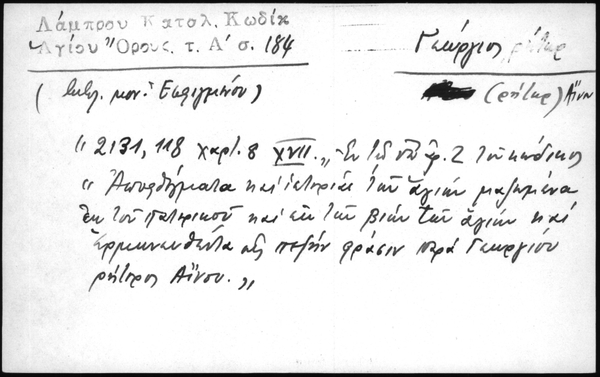 Λάμπρου Κατολ. Κωδίκ
Ἁγίου Ὄρους. τ. Α' σ. 184
Γεώργιος, ρήτωρ
(ρήτωρ) Αἴνου
(βιβλ. μον. Ἐσφιγμένου)
" 2131, 118 χαρτ. 8 XVII. „ Ἐν τῷ ὑπ' ἀρ. 2 τοῦ κώδικος
" Ἀποφθέγματα καὶ ἱστορίαι τῶν ἁγίων μαζωμένα
ἐκ τοῦ πατερικοῦ καὶ ἐκ τῶν βίων τῶν ἁγίων καὶ
ἑρμηνευθέντα εἰς πεζὴν φράσιν παρὰ Γεωργίου
ρήτορος Αἴνου. „